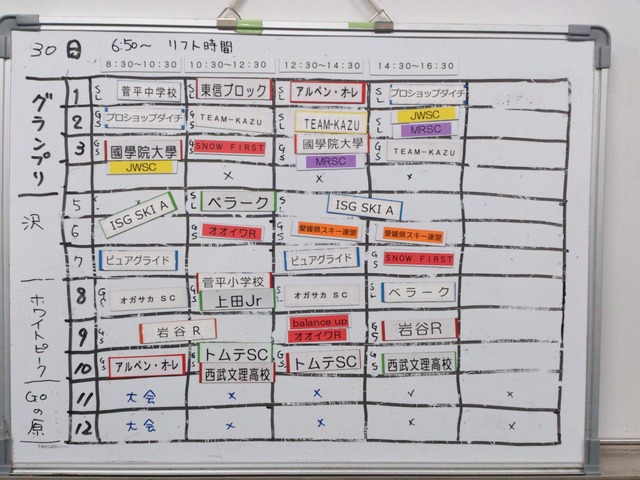 30 日 6:50～ リフト時間
8:30～10:30 10:30～12:30 12:30～14:30 14:30～16:30
グランプリ
1 SL 菅平中学校 SL 東信ブロック SL アルペン・オレ SL プロショップダイチ
2 GS プロショップダイチ GS TEAM-KAZU SL TEAM-KAZU GS JWSC MRSC
3 GS 國學院大學 JWSC GS SNOW FIRST GS 國學院大學 MRSC GS TEAM-KAZU
× × ×
沢
5 ISG SKI A SL ベラーク SL ISG SKI A
6 GS オオイワR GS 愛媛県スキー連盟 GS 愛媛県スキー連盟
7 SL ピュアグライド SL ピュアグライド GS SNOW FIRST
ホワイトピーク
8 GS オガサカ SC 菅平小学校 上田Jr GS オガサカ SC SL ベラーク
9 GS 岩谷R GS balance up オオイワR GS 岩谷R
10 GS アルペン・オレ GS トムテSC 西武文理高校 GS トムテSC GS 西武文理高校
Goの原
11 大会 × × ×
12 大会 × × × ×